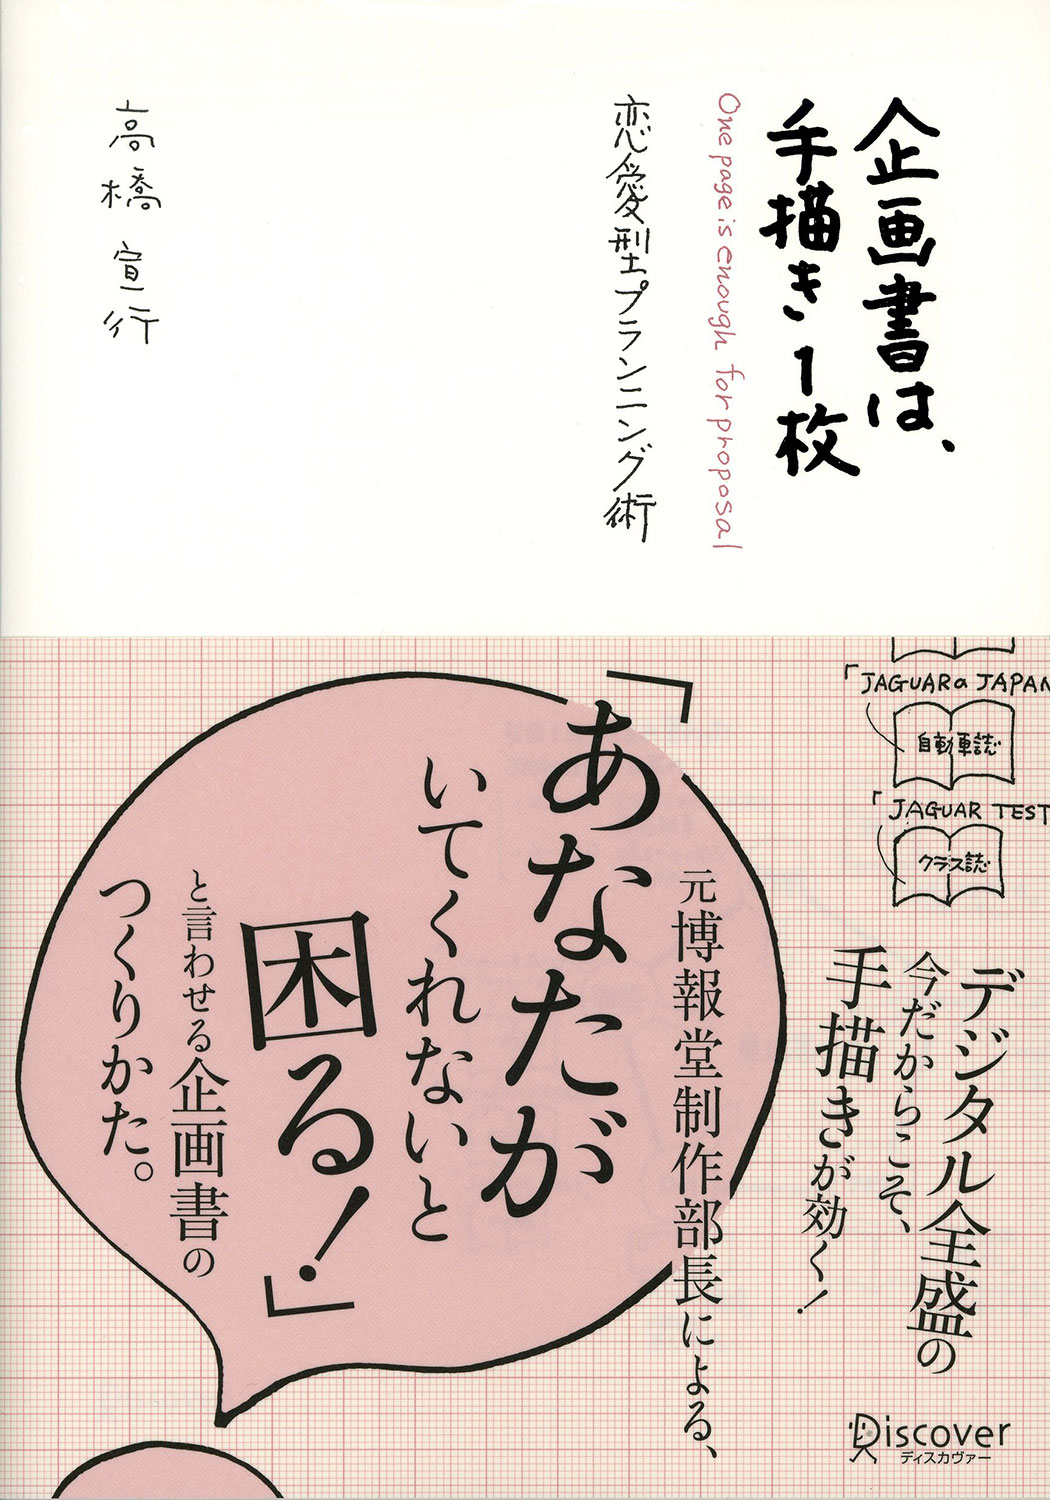 企画書は、
手描き1枚
One page is enough for proposal
恋愛型プランニング術
高橋 宣行
「JAGUAR a JAPAN
自動車誌
「JAGUAR TEST
クラス誌
デジタル全盛の
今だからこそ、
手描きが効く!
元博報堂制作部長による、
「あなたが
いてくれないと
困る!」
と言わせる企画書の
つくりかた。
Discover
ディスカヴァー